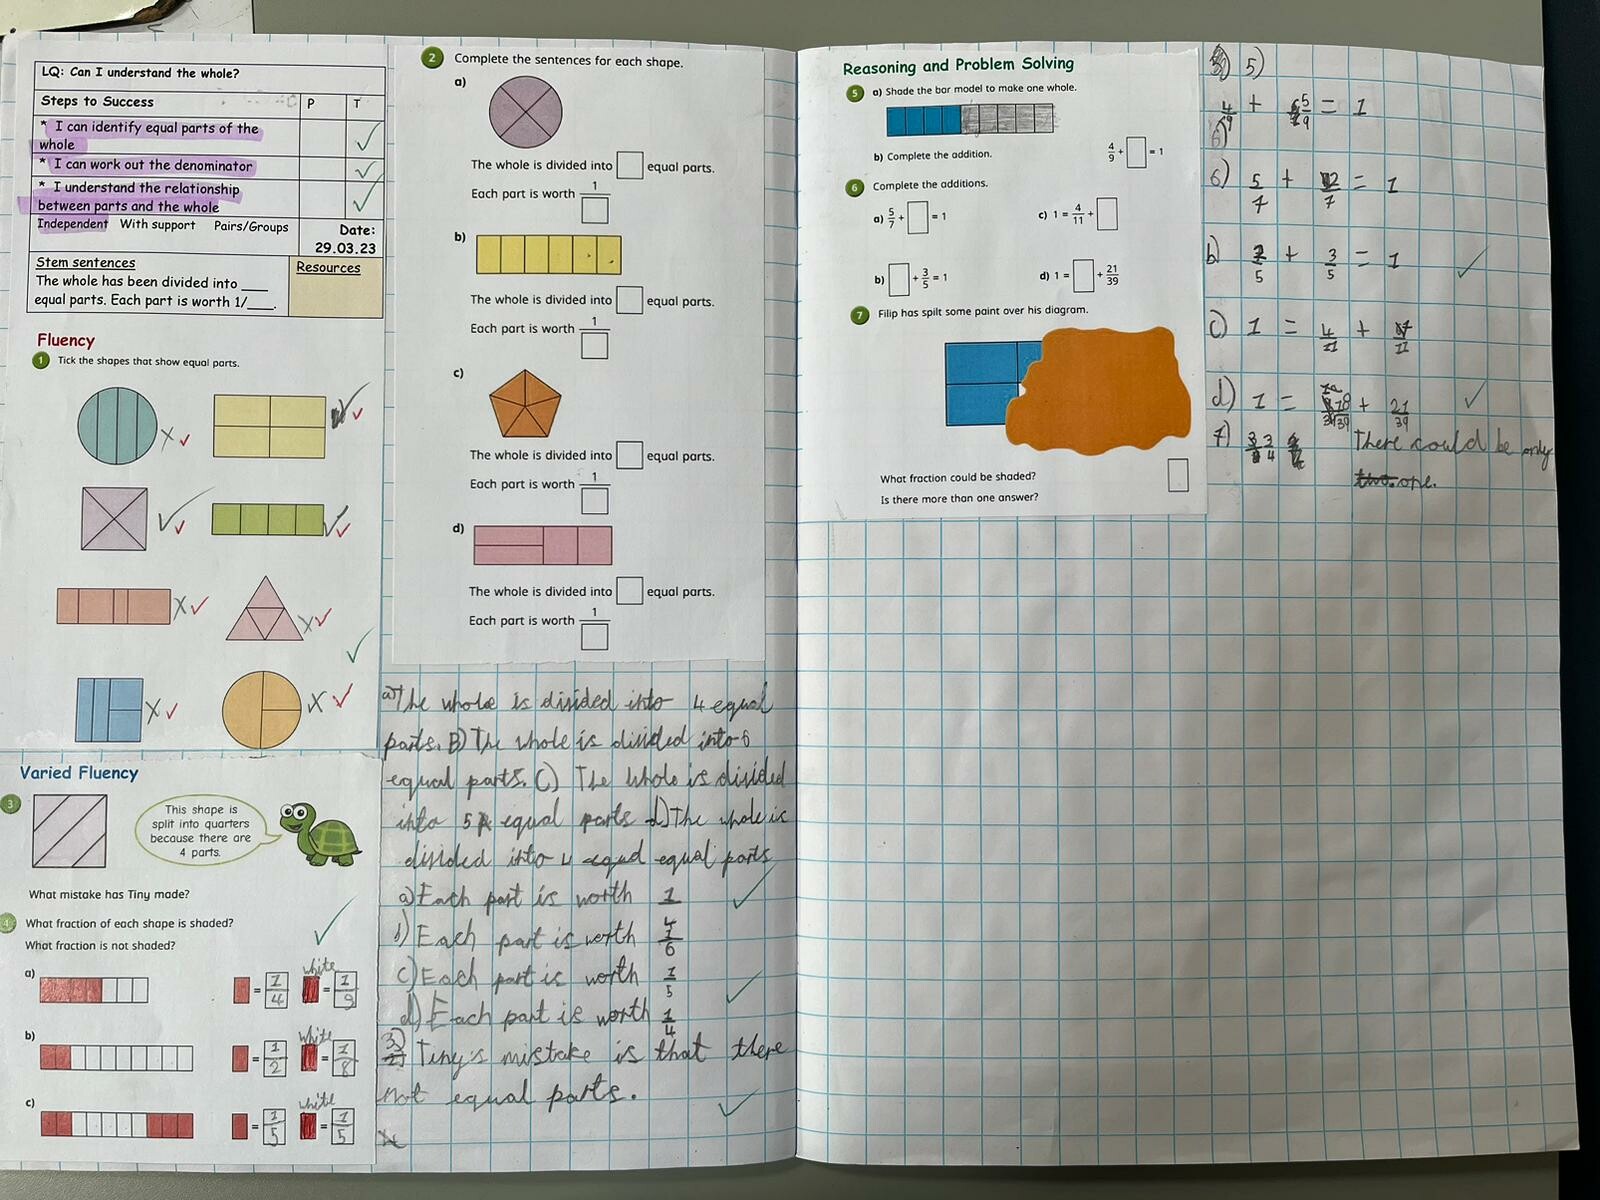 LQ: Can I understand the whole?
Steps to Success P T
* I can identify equal parts of the
whole
* I can work out the denominator
* I understand the relationship
between parts and the whole
Independent With support Pairs/Groups
Date:
29.03.23
Stem sentences
The whole has been divided into ___
equal parts. Each part is worth 1/___.
Resources
Fluency
1 Tick the shapes that show equal parts.
Varied Fluency
3
This shape is
split into quarters
because there are
4 parts.
What mistake has Tiny made?
4 What fraction of each shape is shaded?
What fraction is not shaded?
a) = 1/4 white = 1/9
b) = 1/2 white = 1/8
c) = 1/5 white = 1/5
2 Complete the sentences for each shape.
a)
The whole is divided into equal parts.
Each part is worth 1/
b)
The whole is divided into equal parts.
Each part is worth 1/
c)
The whole is divided into equal parts.
Each part is worth 1/
d)
The whole is divided into equal parts.
Each part is worth 1/
a) The whole is divided into 4 equal
parts. B) The whole is divided into 6
equal parts. C) The whole is divided
into 5 equal parts d) The whole is
divided into 4 equal equal parts
a) Each part is worth 1/4
b) Each part is worth 1/6
c) Each part is worth 1/5
d) Each part is worth 1/4
3) Tiny's mistake is that there
not equal parts.
Reasoning and Problem Solving
5 a) Shade the bar model to make one whole.
b) Complete the addition. 4/9 + = 1
6 Complete the additions.
a) 5/7 + = 1 c) 1 = 4/11 +
b) + 3/5 = 1 d) 1 = + 21/39
7 Filip has spilt some paint over his diagram.
What fraction could be shaded?
Is there more than one answer?
5)
4/9 + 5/9 = 1
6) 5/7 + 2/7 = 1
b) 2/5 + 3/5 = 1
c) 1 = 4/11 + 7/11
d) 1 = 18/39 + 21/39
7) 3/4 There could be only
two. one.